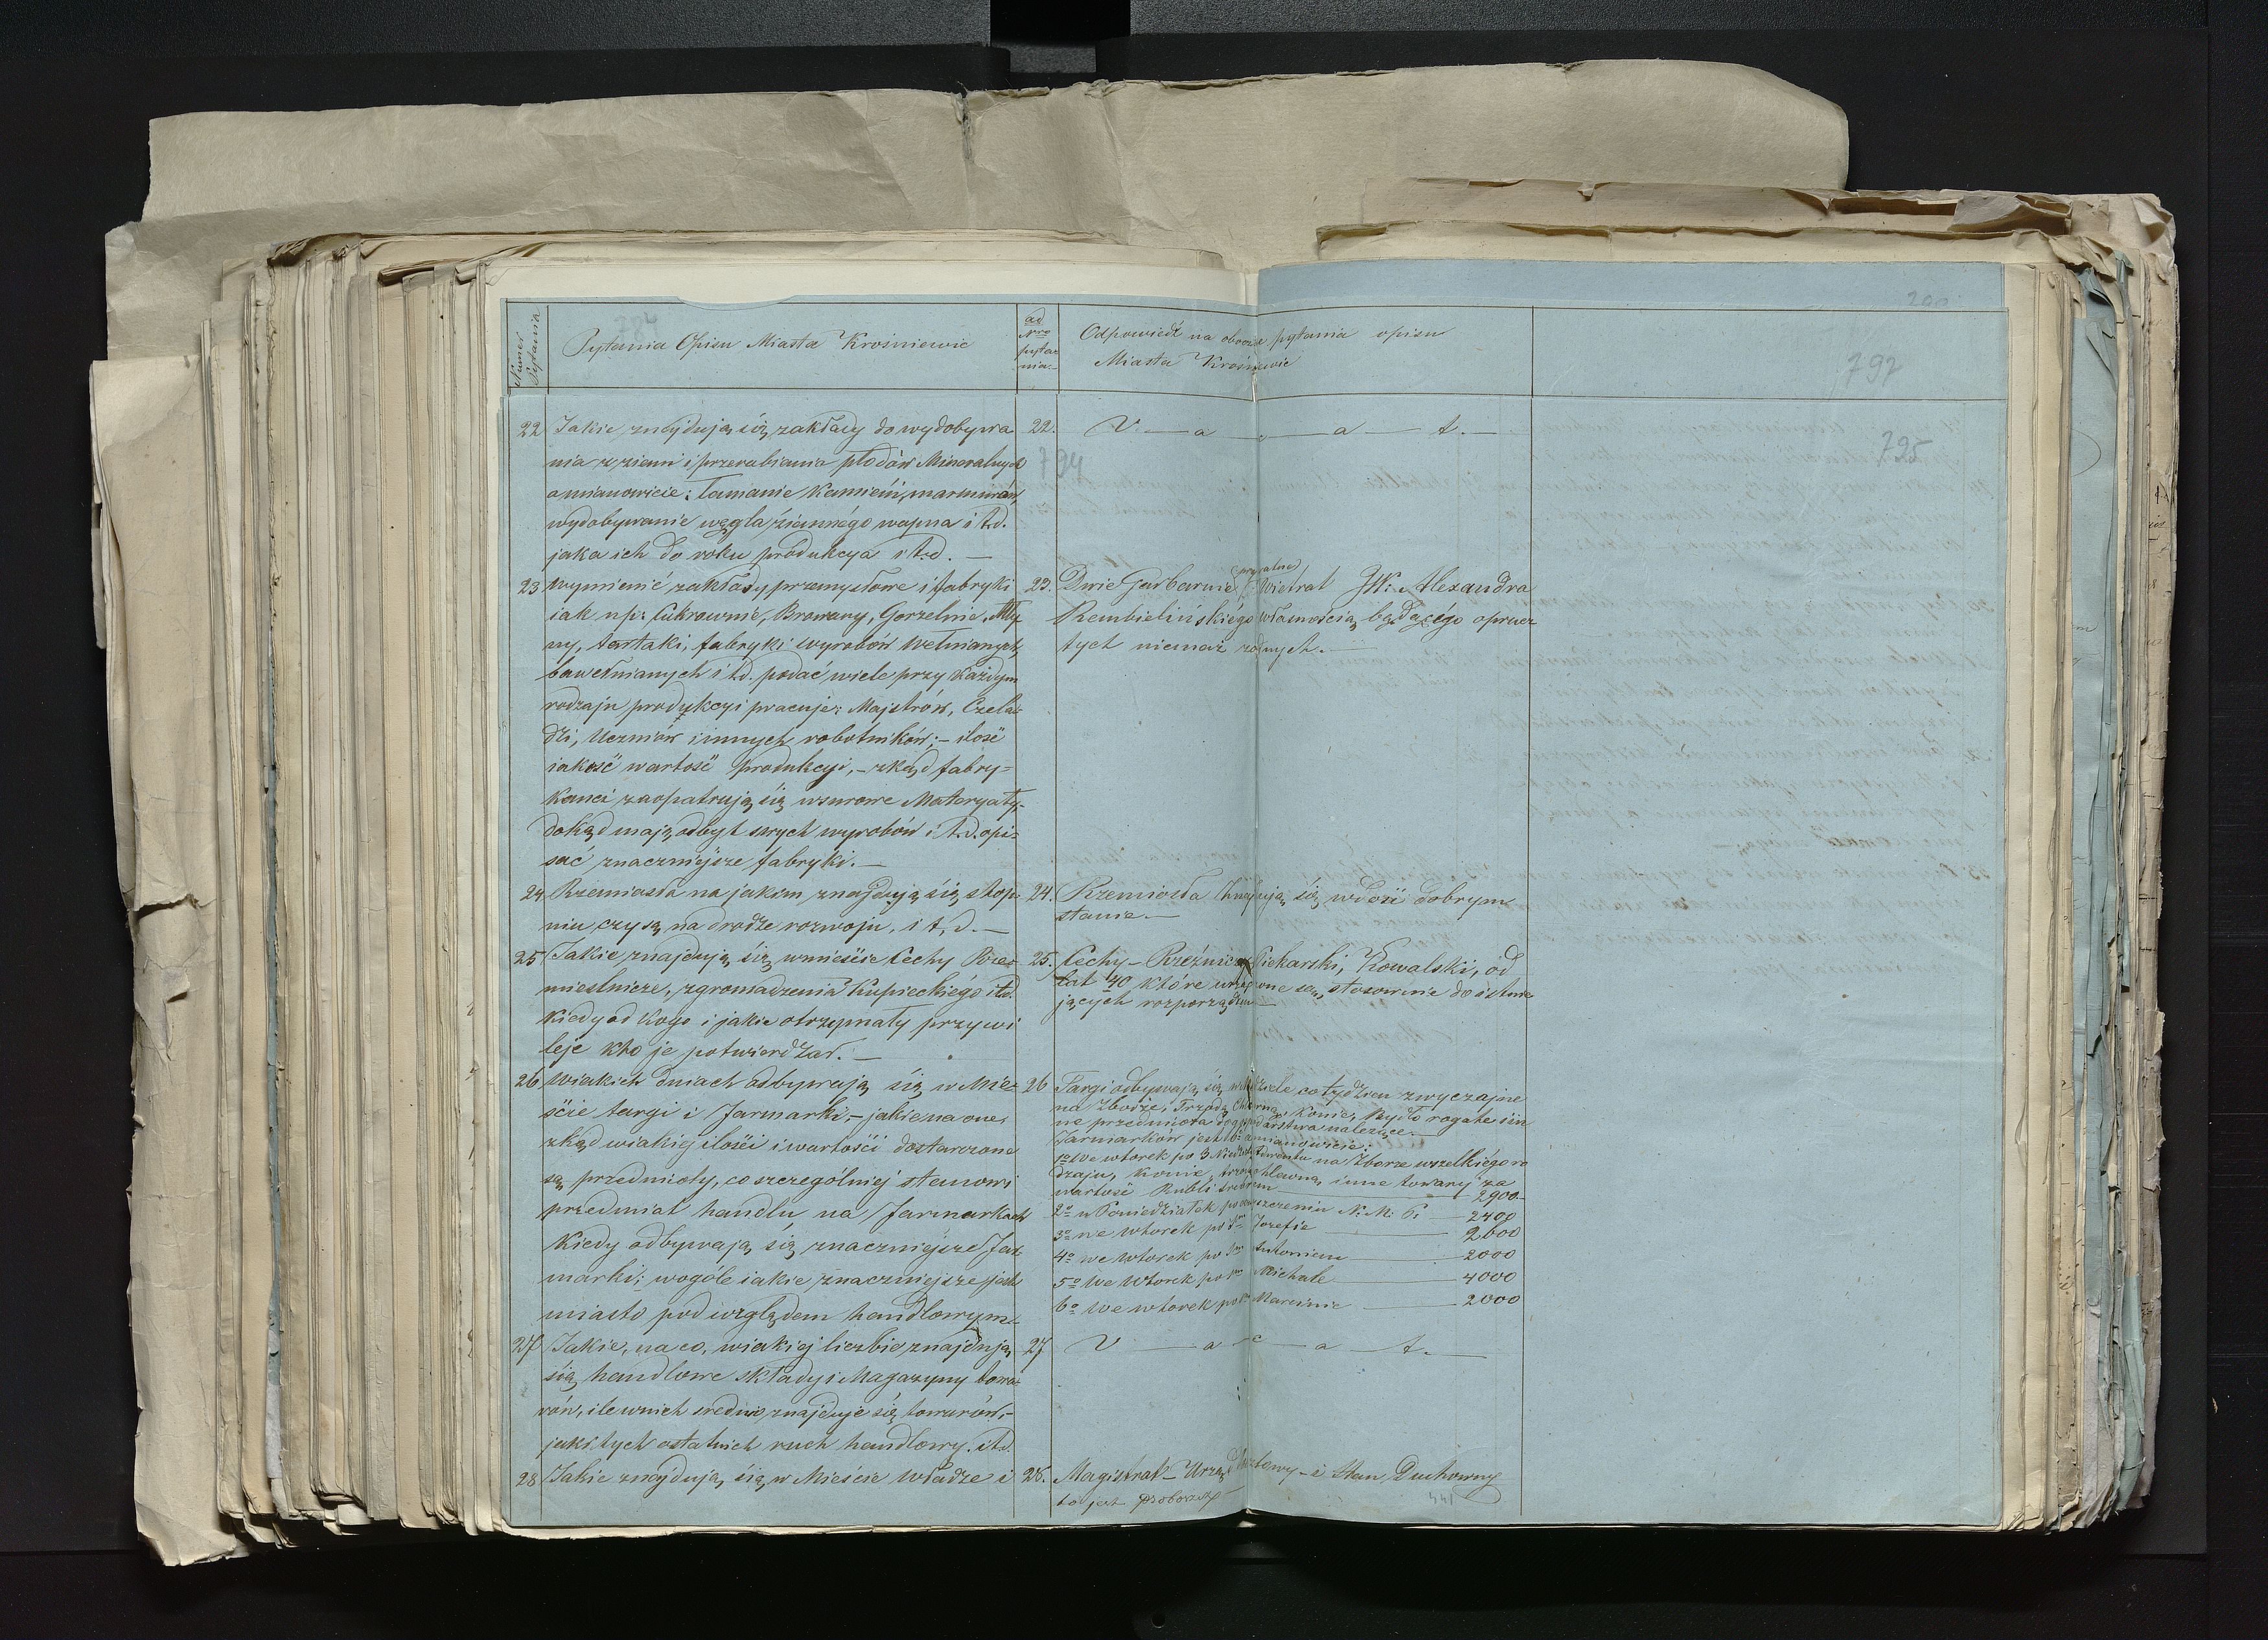 Numer Pytania
Pytania Opisu Miasta Krośniewic
ad Nro pytania
Odpowiedź na obocz pytania opisu
Miasta Krośniewic
797
795
794
22 Jakie znajdują się zakłady do wydobywa
nia z ziemi i przerabiania płodów Mineralnych
a mianowicie: łamanie Kamieni, marmurów,
wydobywanie węgla ziemnégo wapna i t.d.
jaka ich do roku produkcya i t.d. —
22. V — a — c — a — t. —
23 Wymienić zakłady przemysłowe i fabryki
iak np: Cukrownie, Browary, Gorzelnie, Mły
ny, tartaki, fabryki wyrobów Wełnianych,
bawełnianych i t.d. podać wiele przy Każdym
rodzaju produkcyi pracuje: Majstrów, Czela=
dzi, Uczniów i innych robotników; – ilość
iakość wartość produkcyi, – zkąd fabry=
kanci zaopatrują się w surowe Materyały,
dokąd mają odbyt swych wyrobów i t.d. opi=
sać znaczniejsze fabryki. —
23. Dwie Garbarnie Wiatrak JW: Alexandra
Rembielińskiégo własnością będącégo oprucz
tych niemaż żadnych. —
24 Rzemiosła na jakim znajdują się stop=
niu czy są na drodze rozwoju, i t, d. —
24. Rzemiosła Znajdują się w dość dobrym
stanie. —
25 Jakie znajdują się w mieście Cechy Rze=
mieślnicze, zgromadzenia Kupieckiégo itd.
kiedy od kogo i jakie otrzymały przywi
leje kto je potwierdzał. —
25. Cechy – Rzeźnicki Piekarski, Kowalski, od
lat 40 które urządzone są, stosownie do istnie
jących rozporządzeń —
26 W iakich dniach odbywają się w Mie=
ście targi i Jarmarki, – jakie na one
zkąd w iakiej ilości i wartości dostarczone
są przedmioty, co szczególniej stanowi
przedmiot handlu na Jarmarkach
Kiedy odbywają się znaczniejsze Jar
marki; wogóle iakie znaczniejsze jest
miasto pod względem handlowym.
26 Targi odbywają się w Niedziele co tydzień zwyczajne
na Zboże, Trzodę Chlewną, Konie, Bydło rogate i in
ne przedmiota do gospodarstwa należące. —
Jarmarków jest 6 a mianowicie:
1o We wtorek po 3 Niedzieli Adwentu na Zboże wszelkiégo ro
dzaju, Konie, trzodę chlewną, inne towary za
wartość Rubli srebrem — 2900 –
2o w Poniedziałek po N. M. P. — 2400
3o we wtorek po Śm Jozefie — 2600
4o we Wtorek po Śm Antonim — 2000
5o We Wtorek po Śm Michale — 4000
6o We wtorek po Śm Marcinie — 2000
27 Jakie, na co, w iakiej liczbie znajdują
się handlowe składy i Magazyny towa=
rów, ile w nich srednio znajduje się towarów, –
jaki tych ostatnich ruch handlowy. itd.
27 V — a — c — a — t. —
28 Jakie znajdują się w Mieście Władze i
28. Magistrat – Urząd Pocztowy – i Stan Duchowny
to jest proboszcz —
441